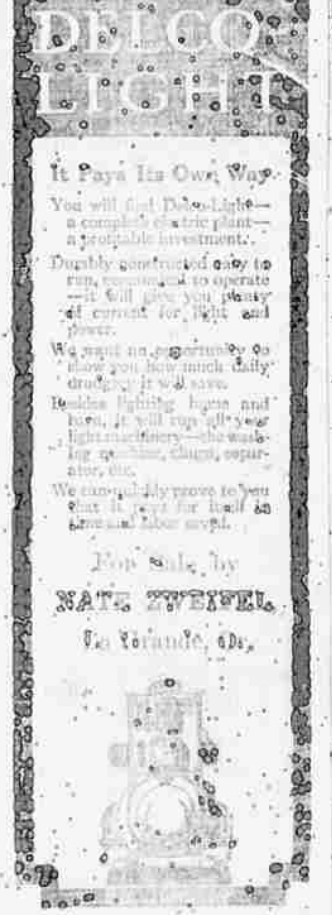 DELCO-
LIGHT
It Pays Its Own Way
You will find Delco-Light—
a complete electric plant—
a profitable investment.
Durably constructed easy to
run, economical to operate
—it will give you plenty
of current for light and
power.
We want an opportunity to
show you how much daily
drudgery it will save.
Besides lighting home and
barn, it will run all your
light machinery—the wash-
ing machine, churn, separ-
ator, etc.
We can quickly prove to you
that it pays for itself in
time and labor saved.
For Sale by
NATE ZWEIFEL
La Grande, Or.